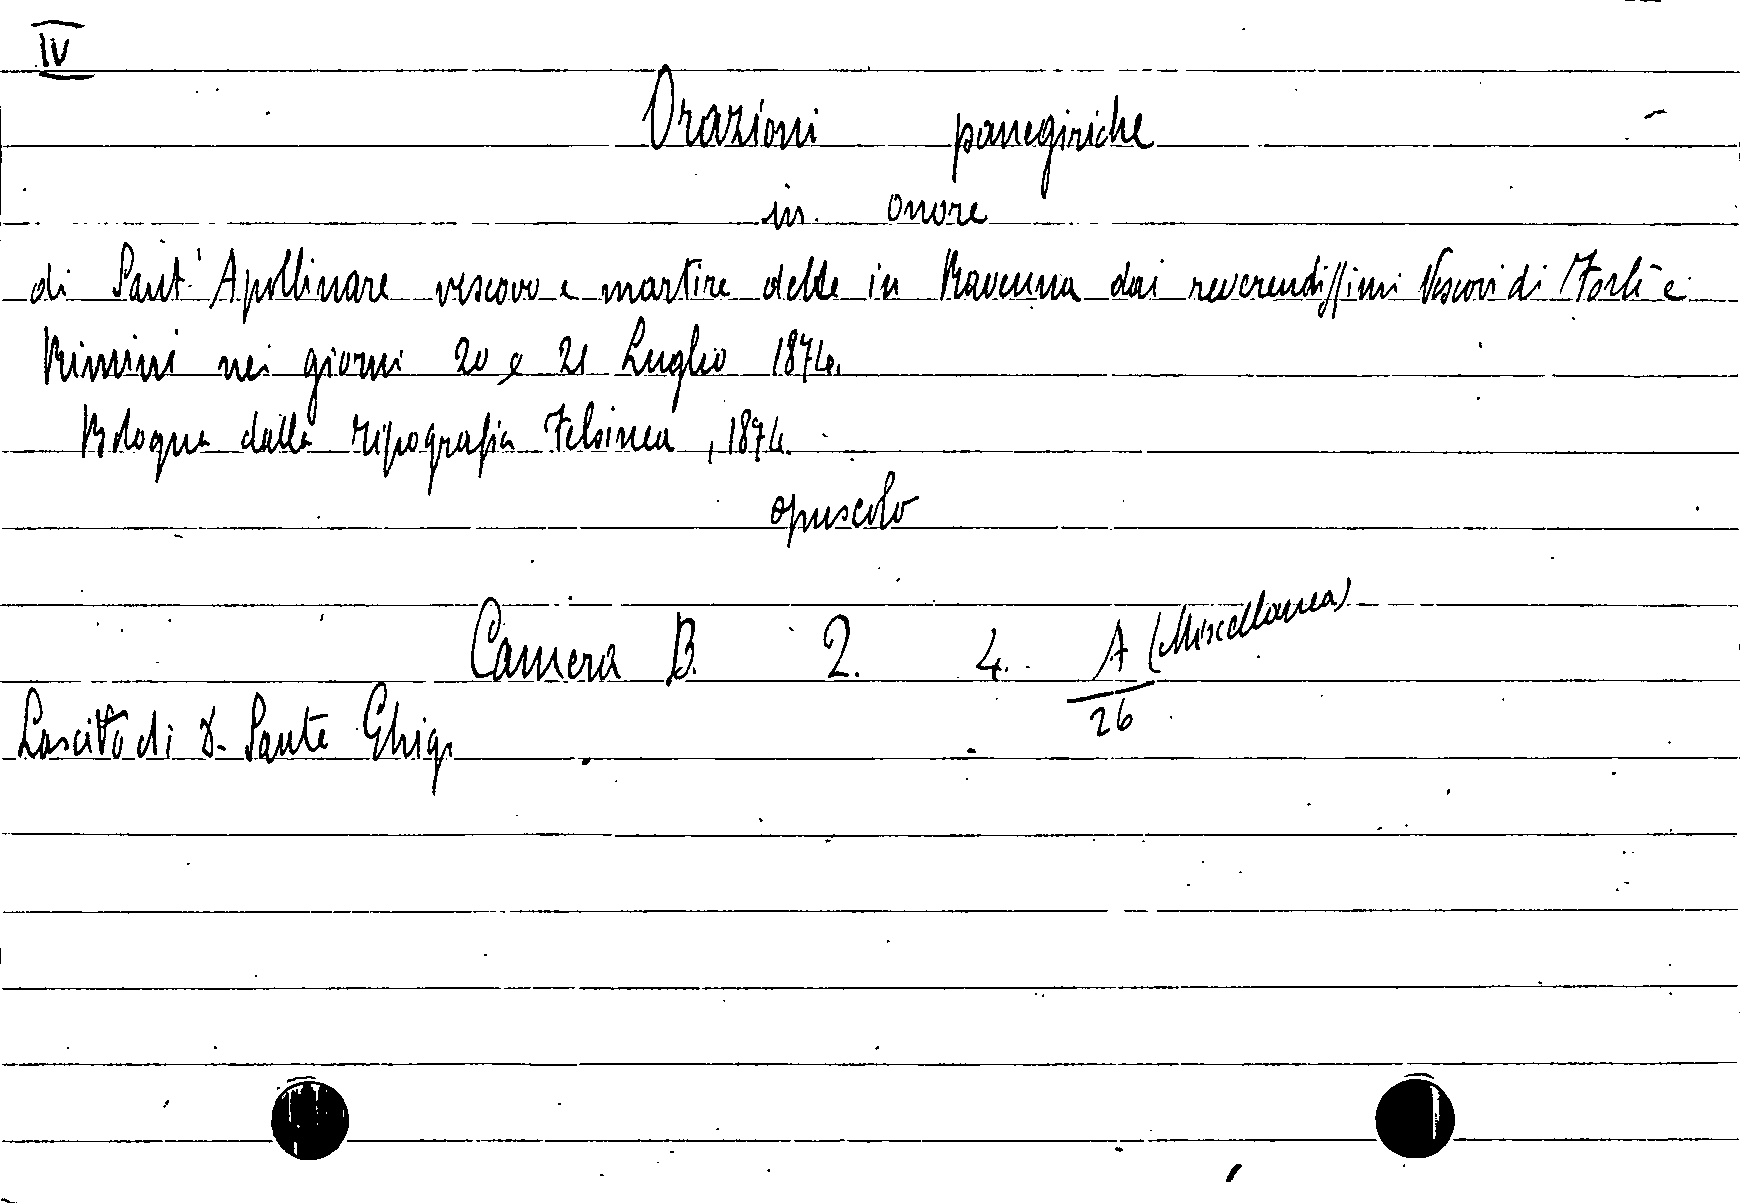 IV
Orazioni panegiriche
in onore
di Sant' Apollinare vescovo e martire dette in Ravenna dai reverendissimi Vescovi di Forlì e
Rimini nei giorni 20 e 21 Luglio 1874.
Bologna dalla tipografia Felsinea, 1874.
opuscolo
Camera B. 2. 4. A (Miscellanea)
26
Lascito di D. Sante Ghigi